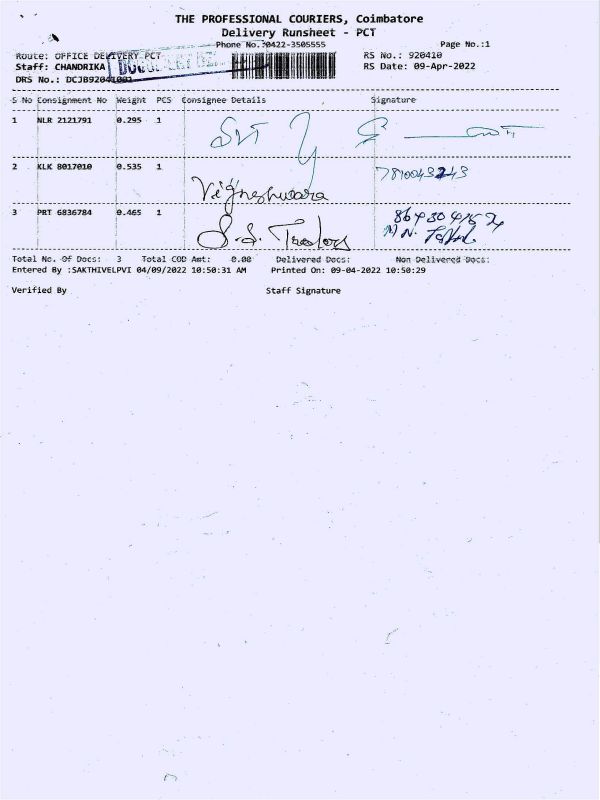 THE PROFESSIONAL COURIERS, Coimbatore
Delivery Runsheet - PCT
Phone No.:0422-3505555 Page No.:1
Route: OFFICE DELIVERY PCT RS No.: 920410
Staff: CHANDRIKA RS Date: 09-Apr-2022
DRS No.: DCJB92041001
S No Consignment No Weight PCS Consignee Details Signature
1 NLR 2121791 0.295 1
2 KLK 8017010 0.535 1 Vigneshwara
3 PRT 6836784 0.465 1 S.S. Traders
Total No. Of Docs: 3 Total COD Amt: 0.00 Delivered Docs: Non Delivered Docs:
Entered By :SAKTHIVELPVI 04/09/2022 10:50:31 AM Printed On: 09-04-2022 10:50:29
Verified By Staff Signature